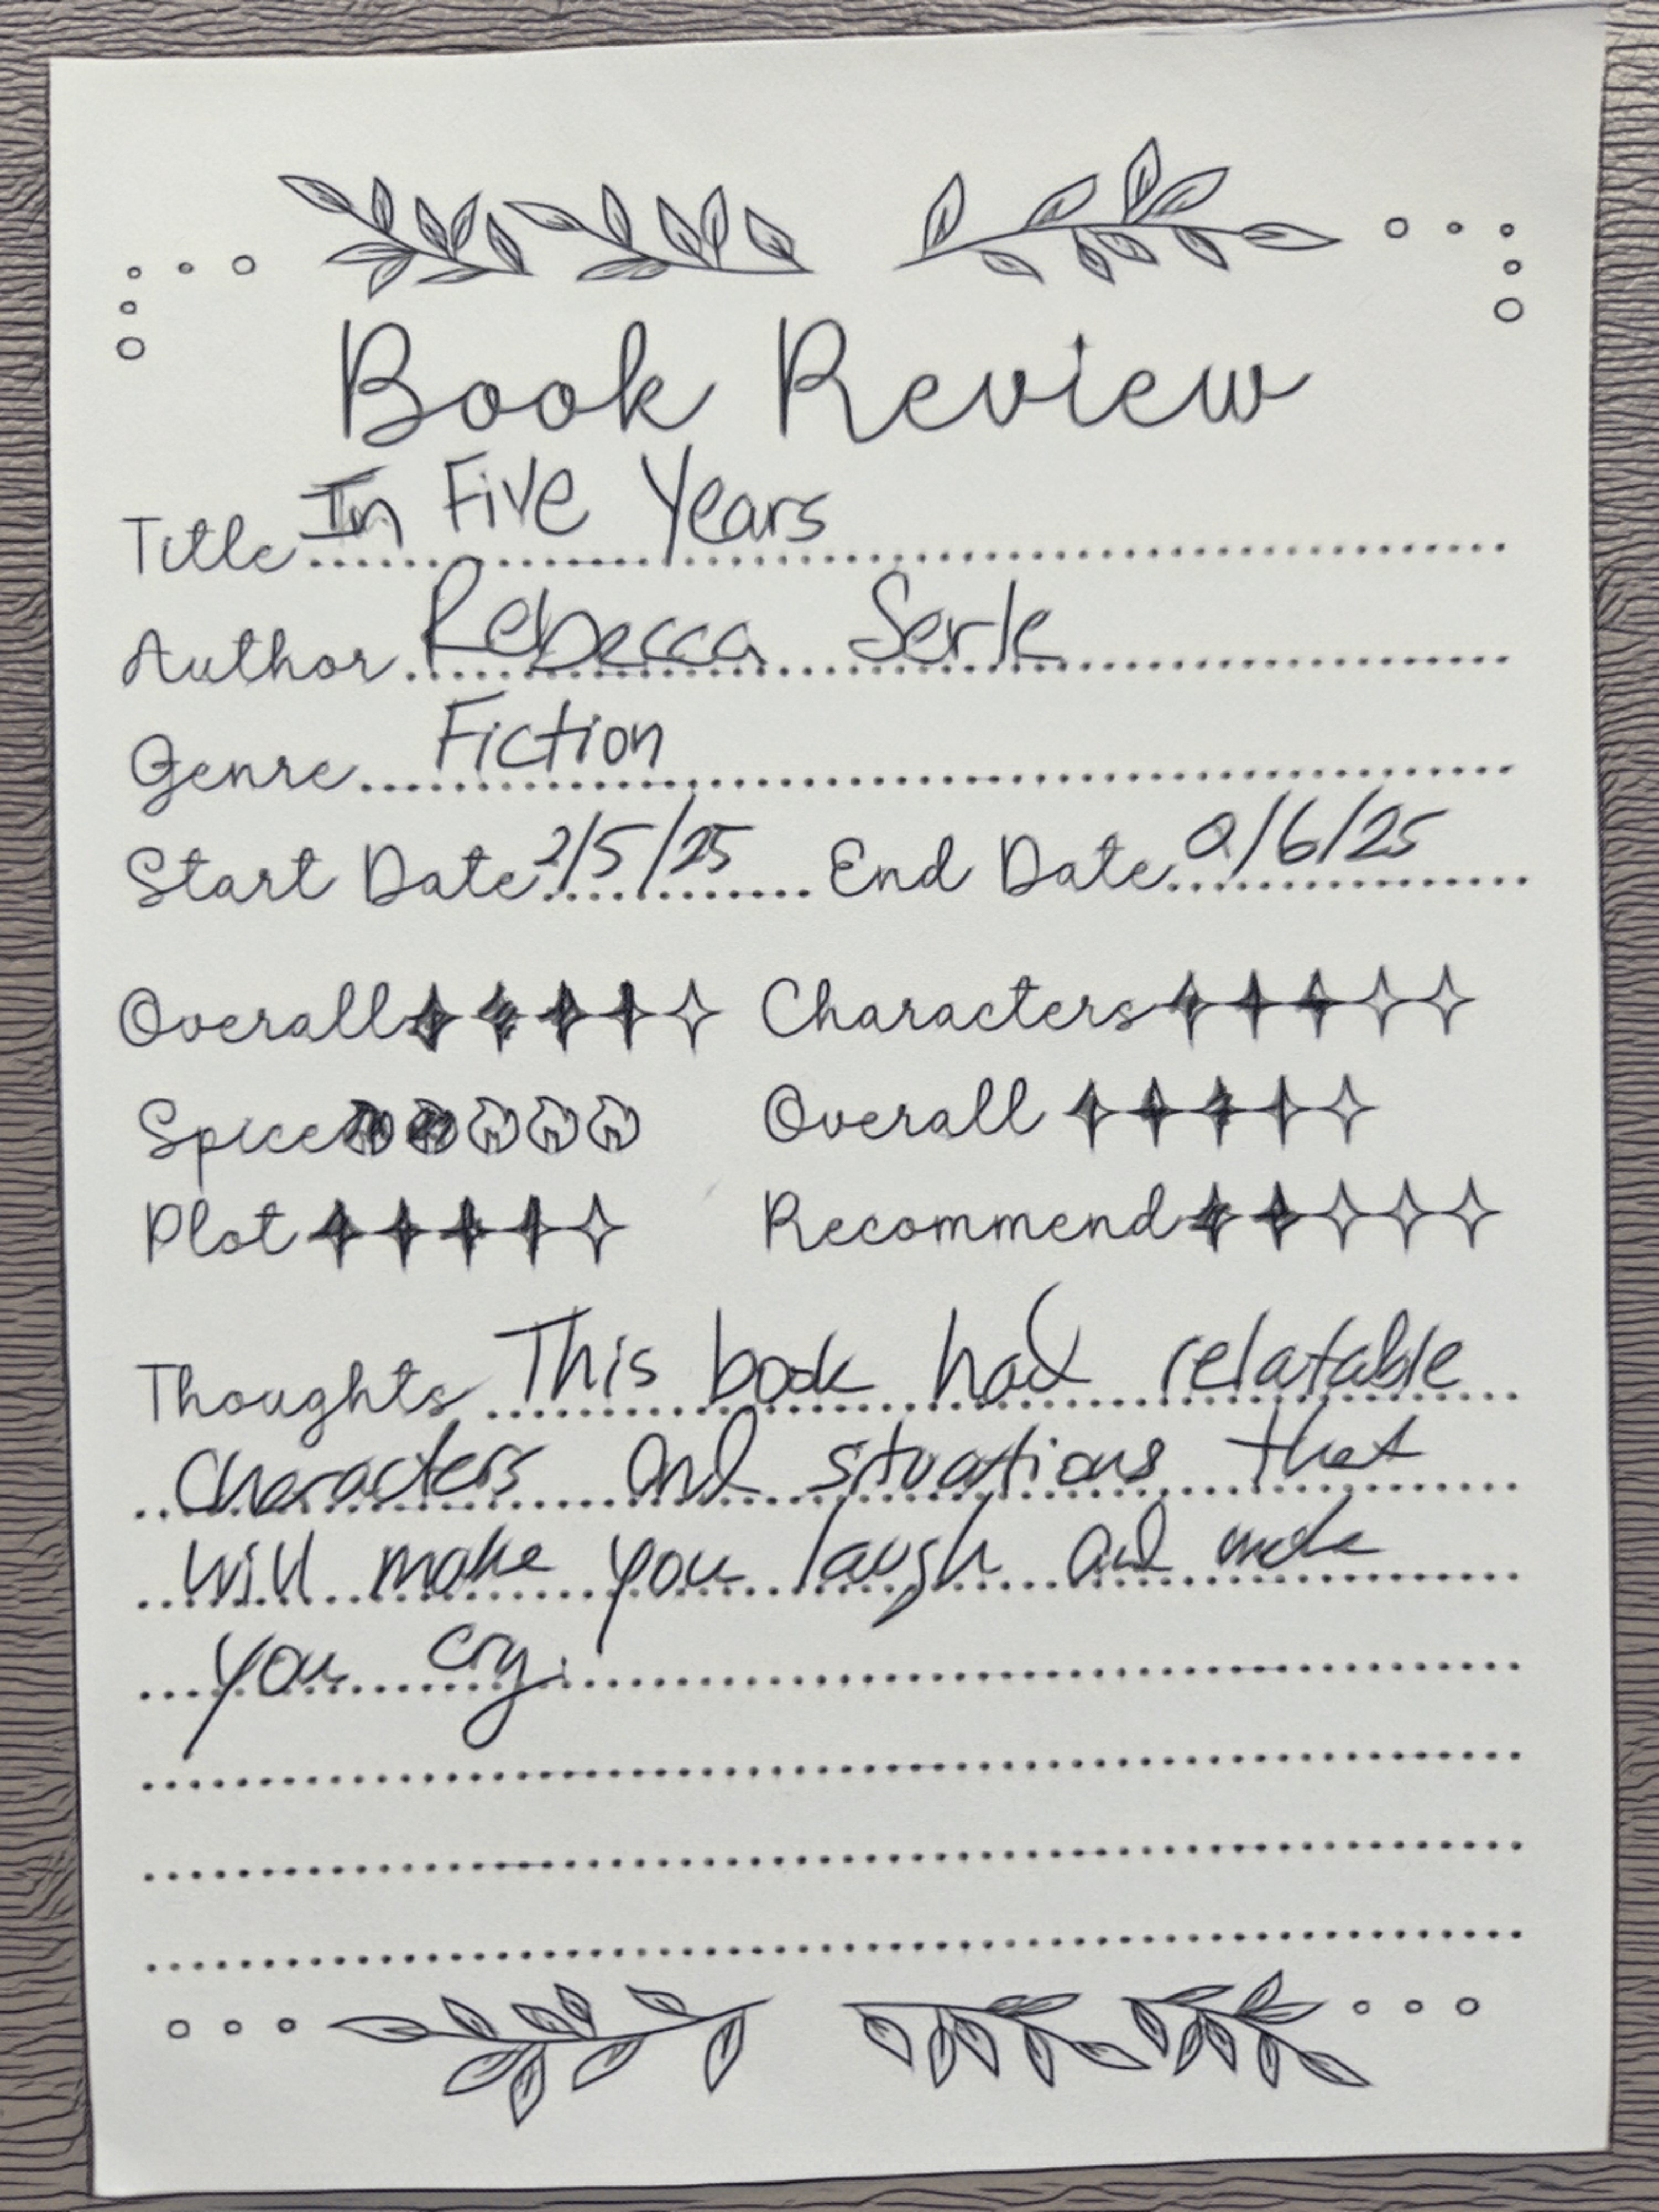 Book Review
Title In Five Years
Author Rebecca Serle
Genre Fiction
Start Date 2/5/25 End Date 2/6/25
Overall Characters
Spice Overall
Plot Recommend
Thoughts This book had relatable
characters and situations that
will make you laugh and make
you cry.